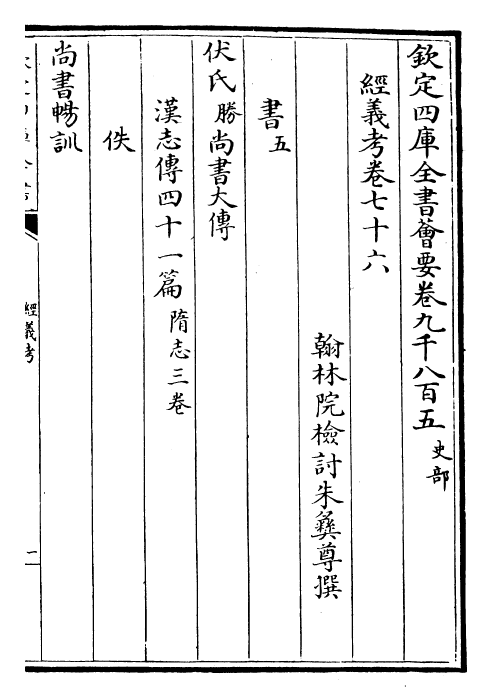 欽定四庫全書薈要卷九千八百五 史部
經義考卷七十六
翰林院檢討朱彝尊撰
書五
伏氏勝尚書大傳
漢志傳四十一篇 隋志三卷
佚
尚書暢訓
經義考
一